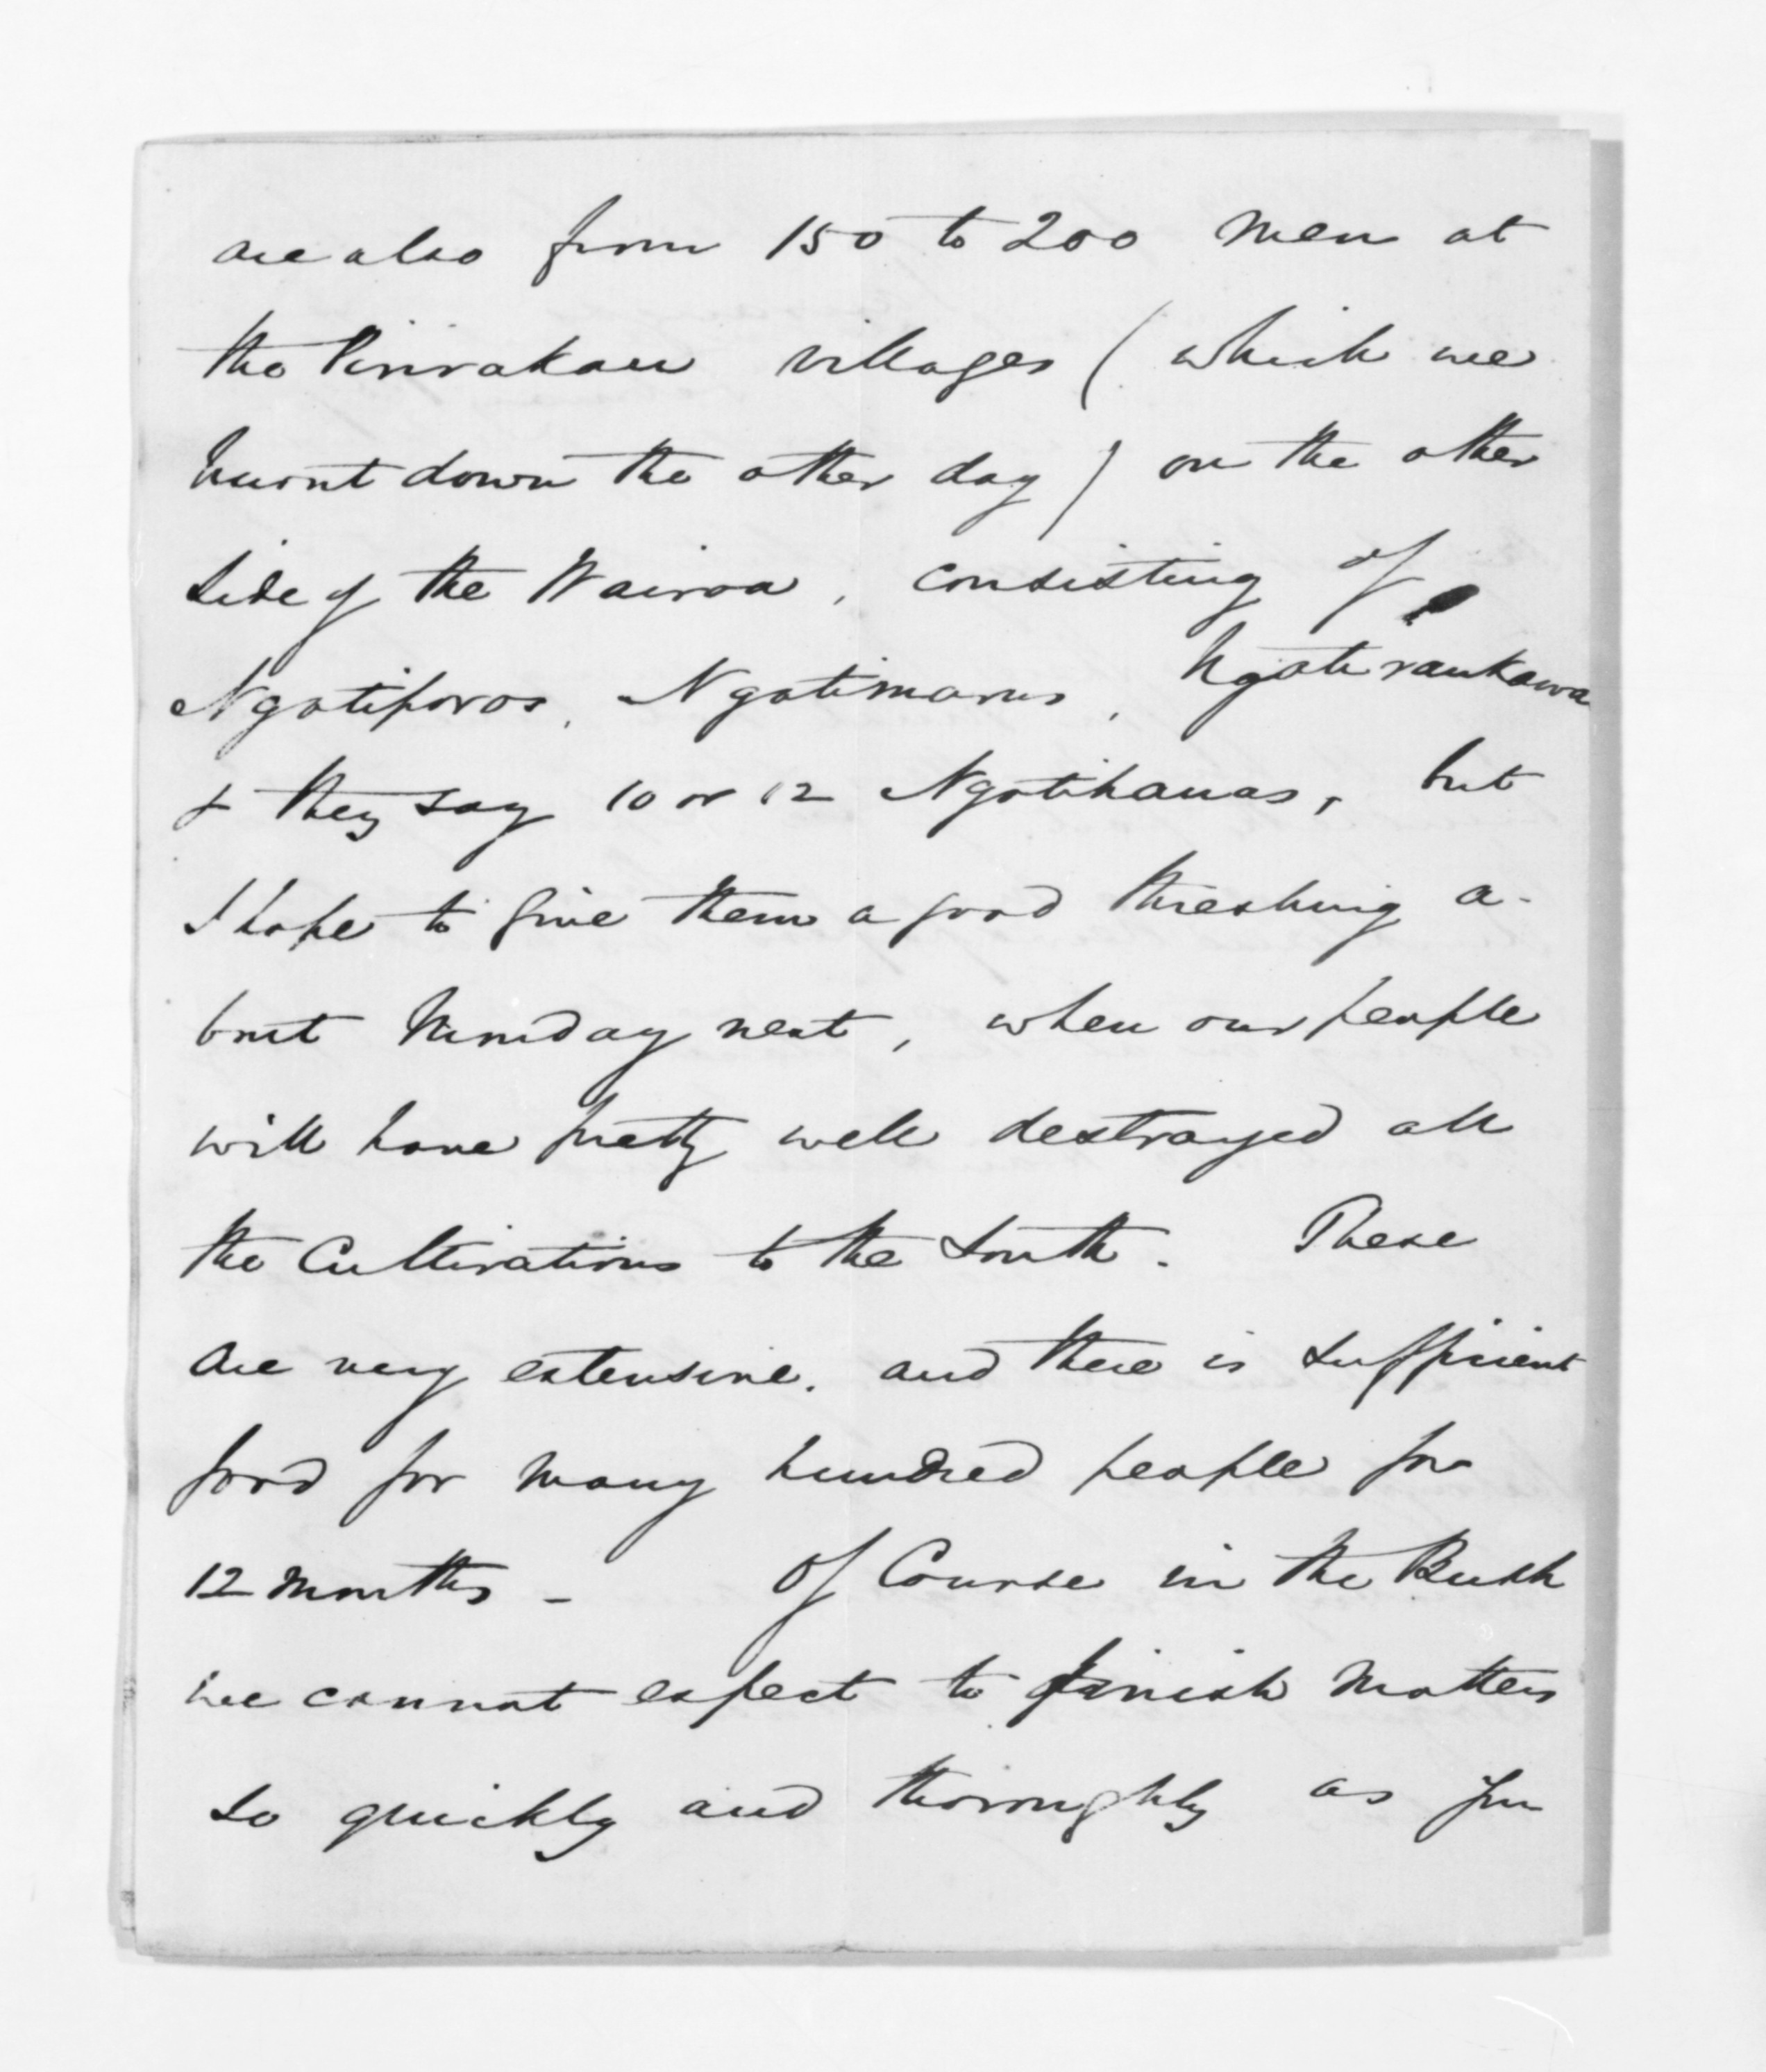 are also from 150 to 200 men at
the Pirirakau villages (which we
burnt down the other day) on the other
side of the Wairoa, consisting of
Ngatiporos, Ngatimarus, Ngatiraukawa
& they say 10 or 12 Ngatihauas, but
I hope to give them a good threshing a-
bout Monday next, when our people
will have pretty well destroyed all
the Cultivations to the South. These
are very extensive. and there is sufficient
food for many hundred people for
12 months - Of Course in the Bush
we cannot expect to finish matters
so quickly and thoroughly as